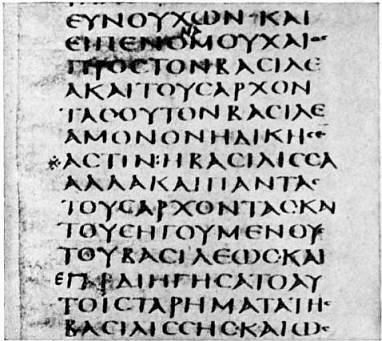 ΕΥΝΟΥΧΩΝ·ΚΑΙ
ΕΙΠΕΝΟΜΟΥΧΑΙΟϹ
ΠΡΟϹΤΟΝΒΑϹΙΛΕ
ΑΚΑΙΤΟΥϹΑΡΧΟΝ
ΤΑϹΟΥΤΟΝΒΑϹΙΛΕ
ΑΜΟΝΟΝΗΔΙΚΗϹΕ
ΑϹΤΙΝ:ΗΒΑϹΙΛΙϹϹΑ
ΑΛΛΑΚΑΙΠΑΝΤΑϹ
ΤΟΥϹΑΡΧΟΝΤΑϹΚΑΙ
ΤΟΥϹΗΓΟΥΜΕΝΟΥϹ
ΤΟΥΒΑϹΙΛΕΩϹΚΑΙ
ΓΑΡΔΙΗΓΗϹΑΤΟΑΥ
ΤΟΙϹΤΑΡΗΜΑΤΑΤΗϹ
ΒΑϹΙΛΙϹϹΗϹΚΑΙΩϹ